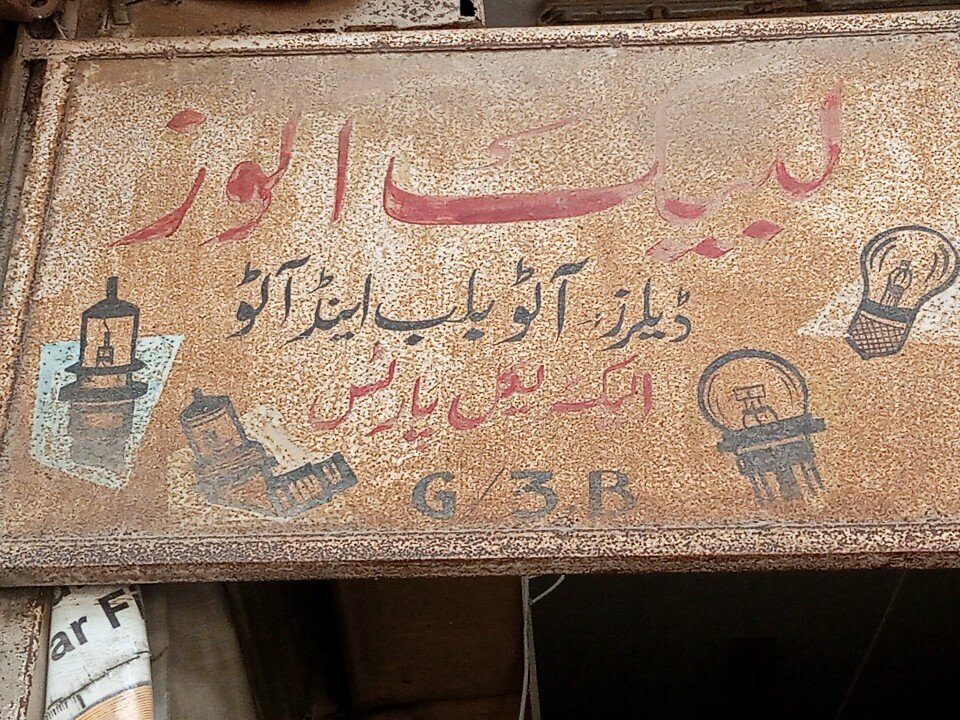 لبیک الوز
ڈیلرز: آٹو بلب اینڈ آٹو
الیکٹریکل پارٹس
G/3.B
ar F